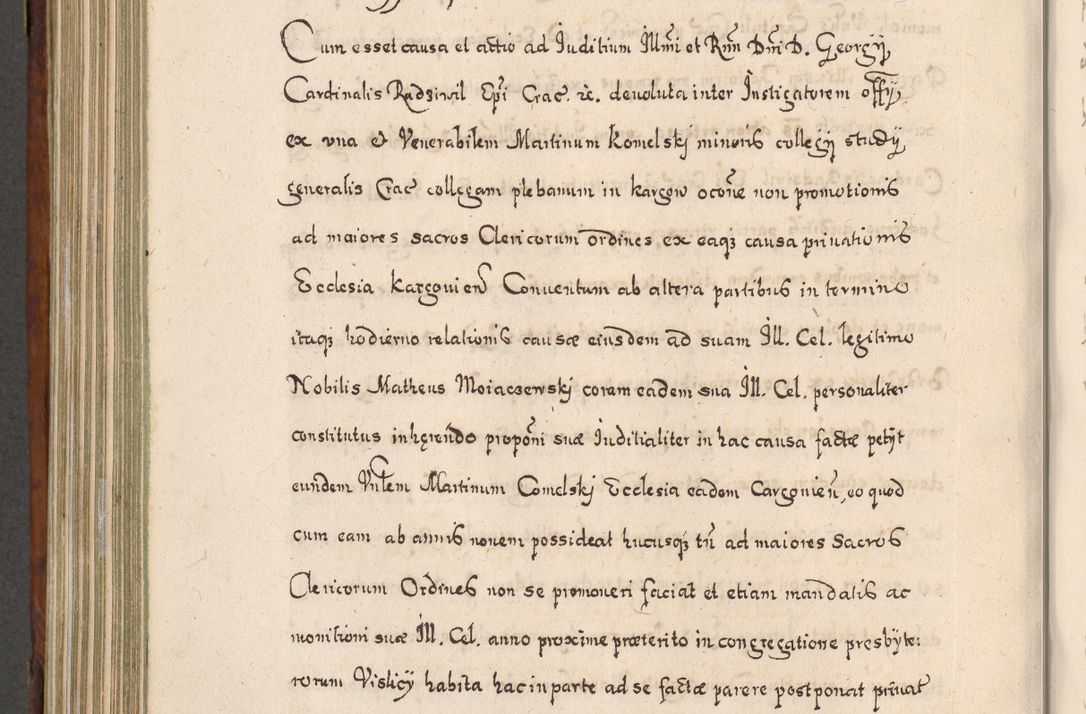 Cum esset causa et actio ad Iuditium Illmi et Rmi Dni D. Georgij
Cardinalis Radziwil Epi Crac. rc. devoluta inter Instigatorem offij
ex vna et Venerabilem Martinum Komelskj minoris collegij studij
generalis Crac collegam plebanum in kargow ocone non promotionis
ad maiores sacros Clericorum ordines ex eaqz causa privationis
Ecclesia kargovien Conventum ab altera partibus in termino
itaqz hodierno relationis causæ eiusdem ad suam Ill. Cel. legitimo
Nobilis Matheus Moiaczewskj coram eadem sua Ill. Cel. personaliter
constitutus inhęrendo proponi suæ Iuditialiter in hac causa factæ petÿt
eundem Vnlem Martinum Comelskj Ecclesia eadem Cargovien, eo quod
cum eam ab annis novem possideat hucusqz tn ad maiores Sacros
Clericorum Ordines non se promoveri faciat et etiam mandatis ac
monitioni suæ Ill. Cel. anno proxime præterito in congregatione presbÿte:
rorum Vislicÿ habita hac in parte ad se factæ parere postponat privat